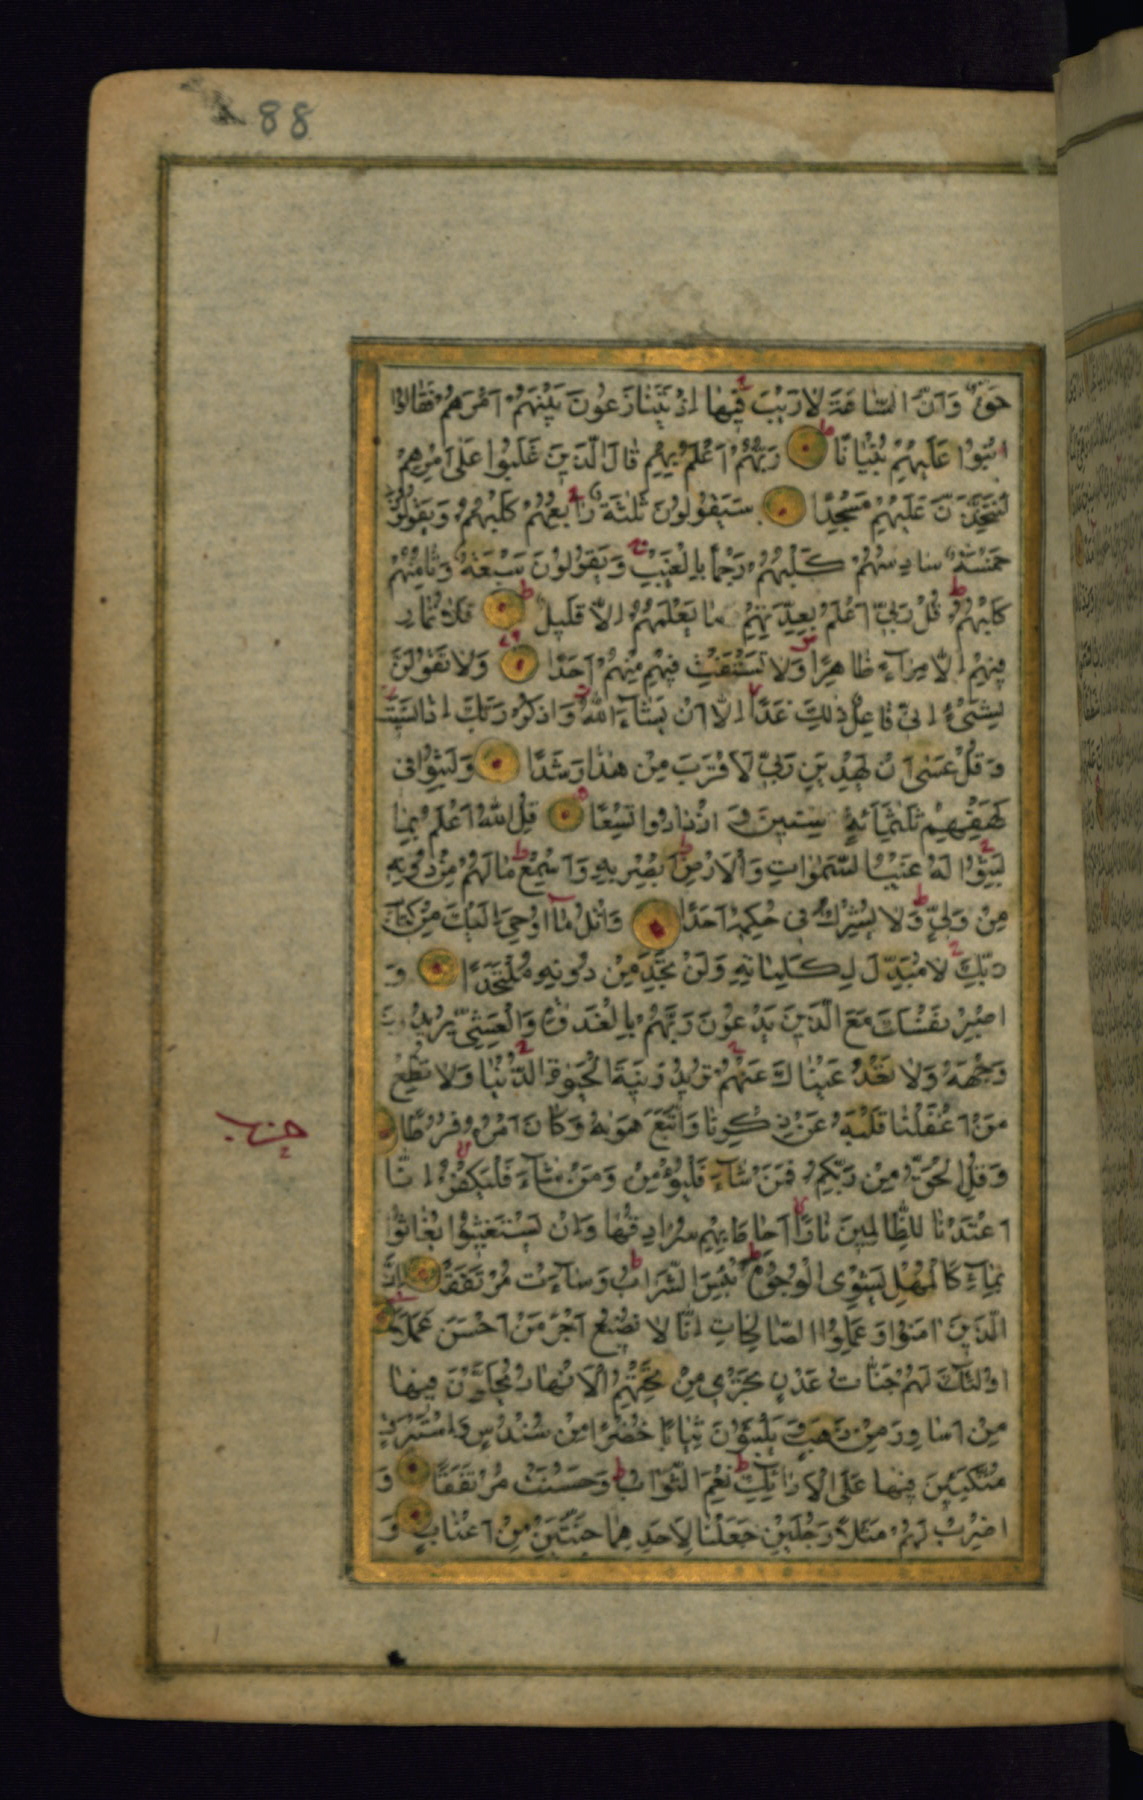 88
حَقٌّ وَاَنَّ السَّاعَةَ لَا رَيْبَ فِيهَا اِذْ يَتَنَازَعُونَ بَيْنَهُمْ اَمْرَهُمْ فَقَالُوا
ابْنُوا عَلَيْهِمْ بُنْيَانًا رَبُّهُمْ اَعْلَمُ بِهِمْ قَالَ الَّذِينَ غَلَبُوا عَلٰى اَمْرِهِمْ
لَنَتَّخِذَنَّ عَلَيْهِمْ مَسْجِدًا سَيَقُولُونَ ثَلٰثَةٌ رَابِعُهُمْ كَلْبُهُمْ وَيَقُولُونَ
خَمْسَةٌ سَادِسُهُمْ كَلْبُهُمْ رَجْمًا بِالْغَيْبِ وَيَقُولُونَ سَبْعَةٌ وَثَامِنُهُمْ
كَلْبُهُمْ قُلْ رَبِّي اَعْلَمُ بِعِدَّتِهِمْ مَا يَعْلَمُهُمْ اِلَّا قَلِيلٌ فَلَا تُمَارِ
فِيهِمْ اِلَّا مِرَاءً ظَاهِرًا وَلَا تَسْتَفْتِ فِيهِمْ مِنْهُمْ اَحَدًا وَلَا تَقُولَنَّ
لِشَيْءٍ اِنِّي فَاعِلٌ ذٰلِكَ غَدًا اِلَّا اَنْ يَشَاءَ اللّٰهُ وَاذْكُرْ رَبَّكَ اِذَا نَسِيتَ
وَقُلْ عَسٰى اَنْ يَهْدِيَنِ رَبِّي لِاَقْرَبَ مِنْ هٰذَا رَشَدًا وَلَبِثُوا فِي
كَهْفِهِمْ ثَلٰثَمِائَةٍ سِنِينَ وَ ازْدَادُوا تِسْعًا قُلِ اللّٰهُ اَعْلَمُ بِمَا
لَبِثُوا لَهُ غَيْبُ السَّمٰوَاتِ وَالْاَرْضِ اَبْصِرْ بِهِ وَاَسْمِعْ مَا لَهُمْ مِنْ دُونِهِ
مِنْ وَلِيٍّ وَلَا يُشْرِكُ فِي حُكْمِهِ اَحَدًا وَاتْلُ مَا اُوحِيَ اِلَيْكَ مِنْ كِتَابِ
رَبِّكَ لَا مُبَدِّلَ لِكَلِمَاتِهِ وَلَنْ تَجِدَ مِنْ دُونِهِ مُلْتَحَدًا وَ
اصْبِرْ نَفْسَكَ مَعَ الَّذِينَ يَدْعُونَ رَبَّهُمْ بِالْغَدٰوةِ وَالْعَشِيِّ يُرِيدُونَ
وَجْهَهُ وَلَا تَعْدُ عَيْنَاكَ عَنْهُمْ تُرِيدُ زِينَةَ الْحَيٰوةِ الدُّنْيَا وَلَا تُطِعْ
مَنْ اَغْفَلْنَا قَلْبَهُ عَنْ ذِكْرِنَا وَاتَّبَعَ هَوٰيهُ وَكَانَ اَمْرُهُ فُرُطًا
وَقُلِ الْحَقُّ مِنْ رَبِّكُمْ فَمَنْ شَاءَ فَلْيُؤْمِنْ وَمَنْ شَاءَ فَلْيَكْفُرْ اِنَّا
اَعْتَدْنَا لِلظَّالِمِينَ نَارًا اَحَاطَ بِهِمْ سُرَادِقُهَا وَاِنْ يَسْتَغِيثُوا يُغَاثُوا
بِمَاءٍ كَالْمُهْلِ يَشْوِي الْوُجُوهَ بِئْسَ الشَّرَابُ وَسَاءَتْ مُرْتَفَقًا اِنَّ
الَّذِينَ اٰمَنُوا وَعَمِلُوا الصَّالِحَاتِ اِنَّا لَا نُضِيعُ اَجْرَ مَنْ اَحْسَنَ عَمَلًا
اُولٰئِكَ لَهُمْ جَنَّاتُ عَدْنٍ تَجْرِي مِنْ تَحْتِهِمُ الْاَنْهَارُ يُحَلَّوْنَ فِيهَا
مِنْ اَسَاوِرَ مِنْ ذَهَبٍ وَيَلْبَسُونَ ثِيَابًا خُضْرًا مِنْ سُنْدُسٍ وَاِسْتَبْرَقٍ
مُتَّكِئِينَ فِيهَا عَلَى الْاَرَائِكِ نِعْمَ الثَّوَابُ وَحَسُنَتْ مُرْتَفَقًا وَ
اضْرِبْ لَهُمْ مَثَلًا رَجُلَيْنِ جَعَلْنَا لِاَحَدِهِمَا جَنَّتَيْنِ مِنْ اَعْنَابٍ وَ
حزب